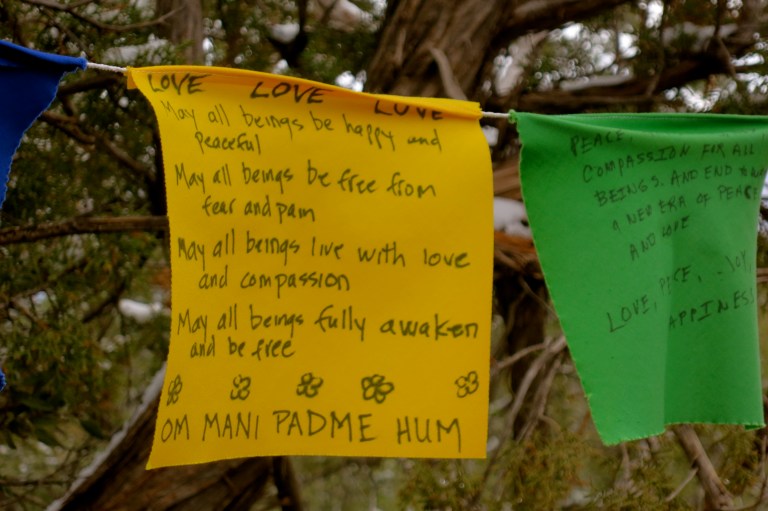 LOVE LOVE LOVE
May all beings be happy and
peaceful
May all beings be free from
fear and pain
May all beings live with love
and compassion
May all beings fully awaken
and be free
OM MANI PADME HUM
PEACE
COMPASSION FOR ALL
BEINGS. AND END
A NEW ERA OF PEACE
AND LOVE
LOVE, JOY,